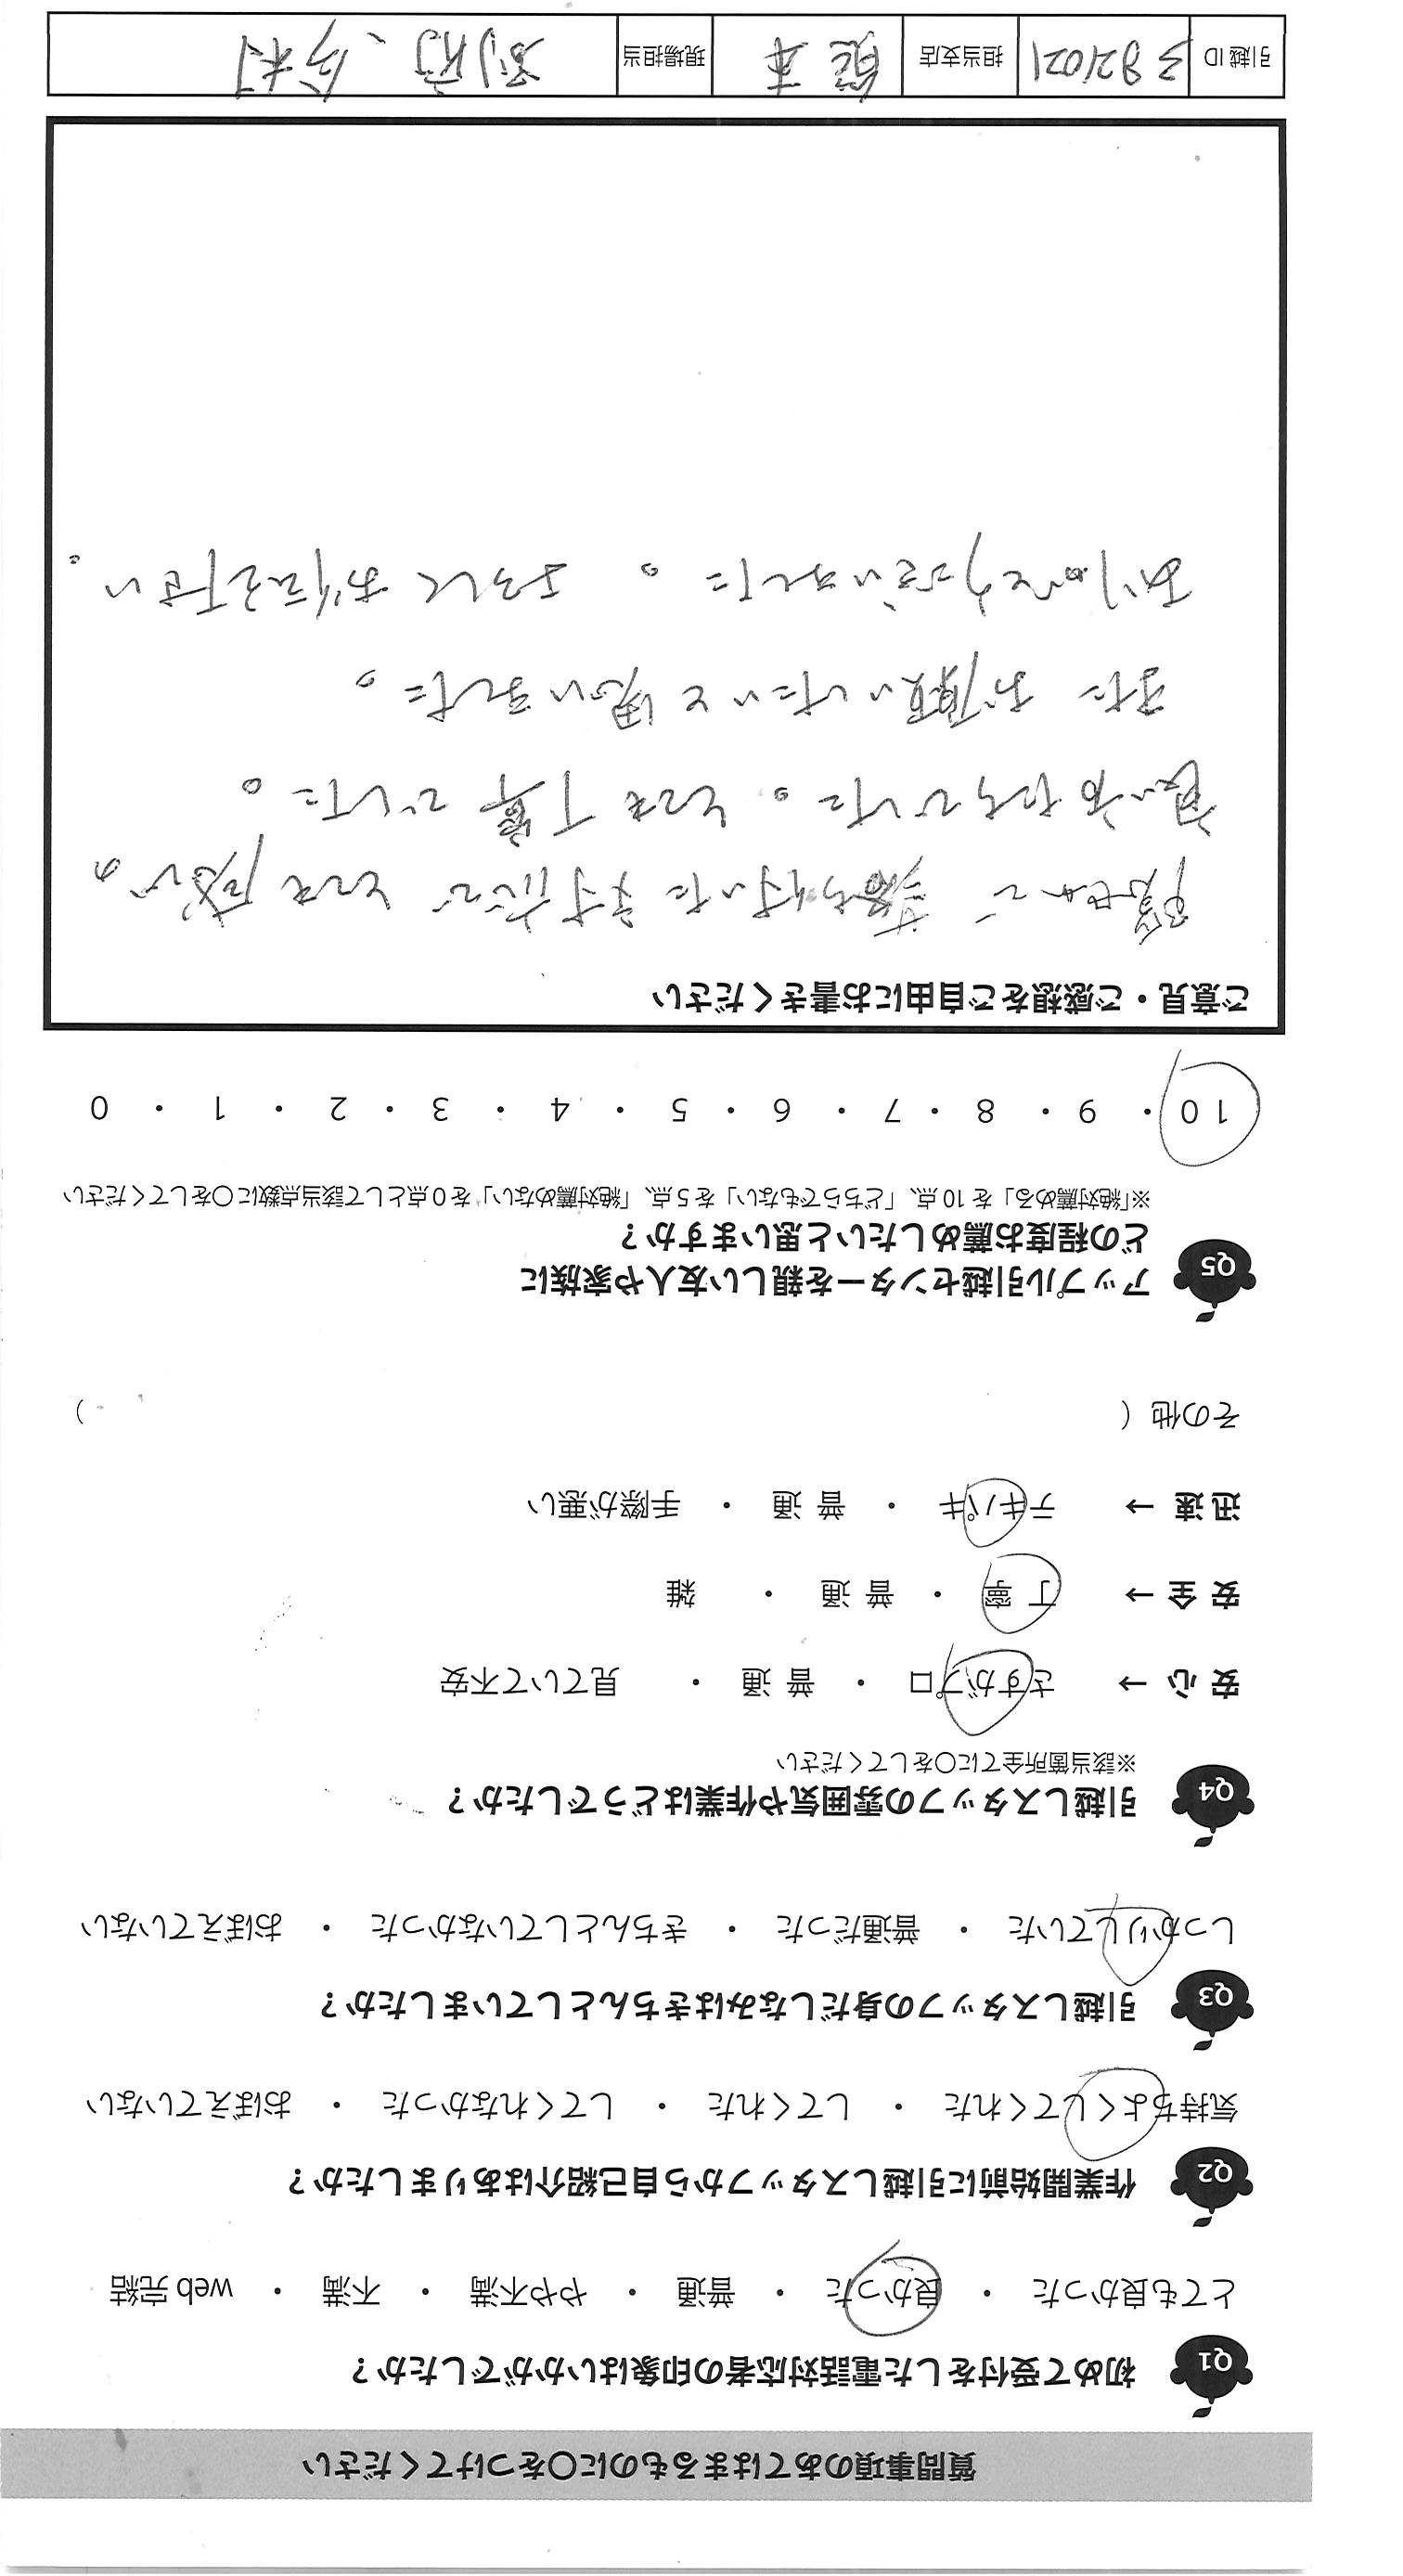 質問事項のあてはまるものに○をつけてください
Q1 初めて受付をした電話対応者の印象はいかがでしたか？
とても良かった ・ 良かった ・ 普通 ・ やや不満 ・ 不満 ・ web 完結
Q2 作業開始前に引越しスタッフから自己紹介はありましたか？
気持ちよくしてくれた ・ してくれた ・ してくれなかった ・ おぼえていない
Q3 引越しスタッフの身だしなみはきちんとしていましたか？
しっかりしていた ・ 普通だった ・ きちんとしていなかった ・ おぼえていない
Q4 引越しスタッフの雰囲気や作業はどうでしたか？
※該当箇所全てに○をしてください
安 心 → さすがプロ ・ 普 通 ・ 見ていて不安
安 全 → 丁 寧 ・ 普 通 ・ 雑
迅 速 → テキパキ ・ 普 通 ・ 手際が悪い
その他（ ）
Q5 アップル引越センターを親しい友人や家族に
どの程度お薦めしたいと思いますか？
※「絶対薦める」を 10 点、「どちらでもない」を 5 点、「絶対薦めない」を 0 点として該当点数に○をしてください
10 ・ 9 ・ 8 ・ 7 ・ 6 ・ 5 ・ 4 ・ 3 ・ 2 ・ 1 ・ 0
ご意見・ご感想をご自由にお書きください
落ちけいた対応で とても感じの
良い方たちでした。とても丁寧でした。
また お願いしたいと思いました。
ありがとうございました。 よろしくお伝え下さい。
引越 ID 3921021 担当支店 熊本 現場担当 別府、今村